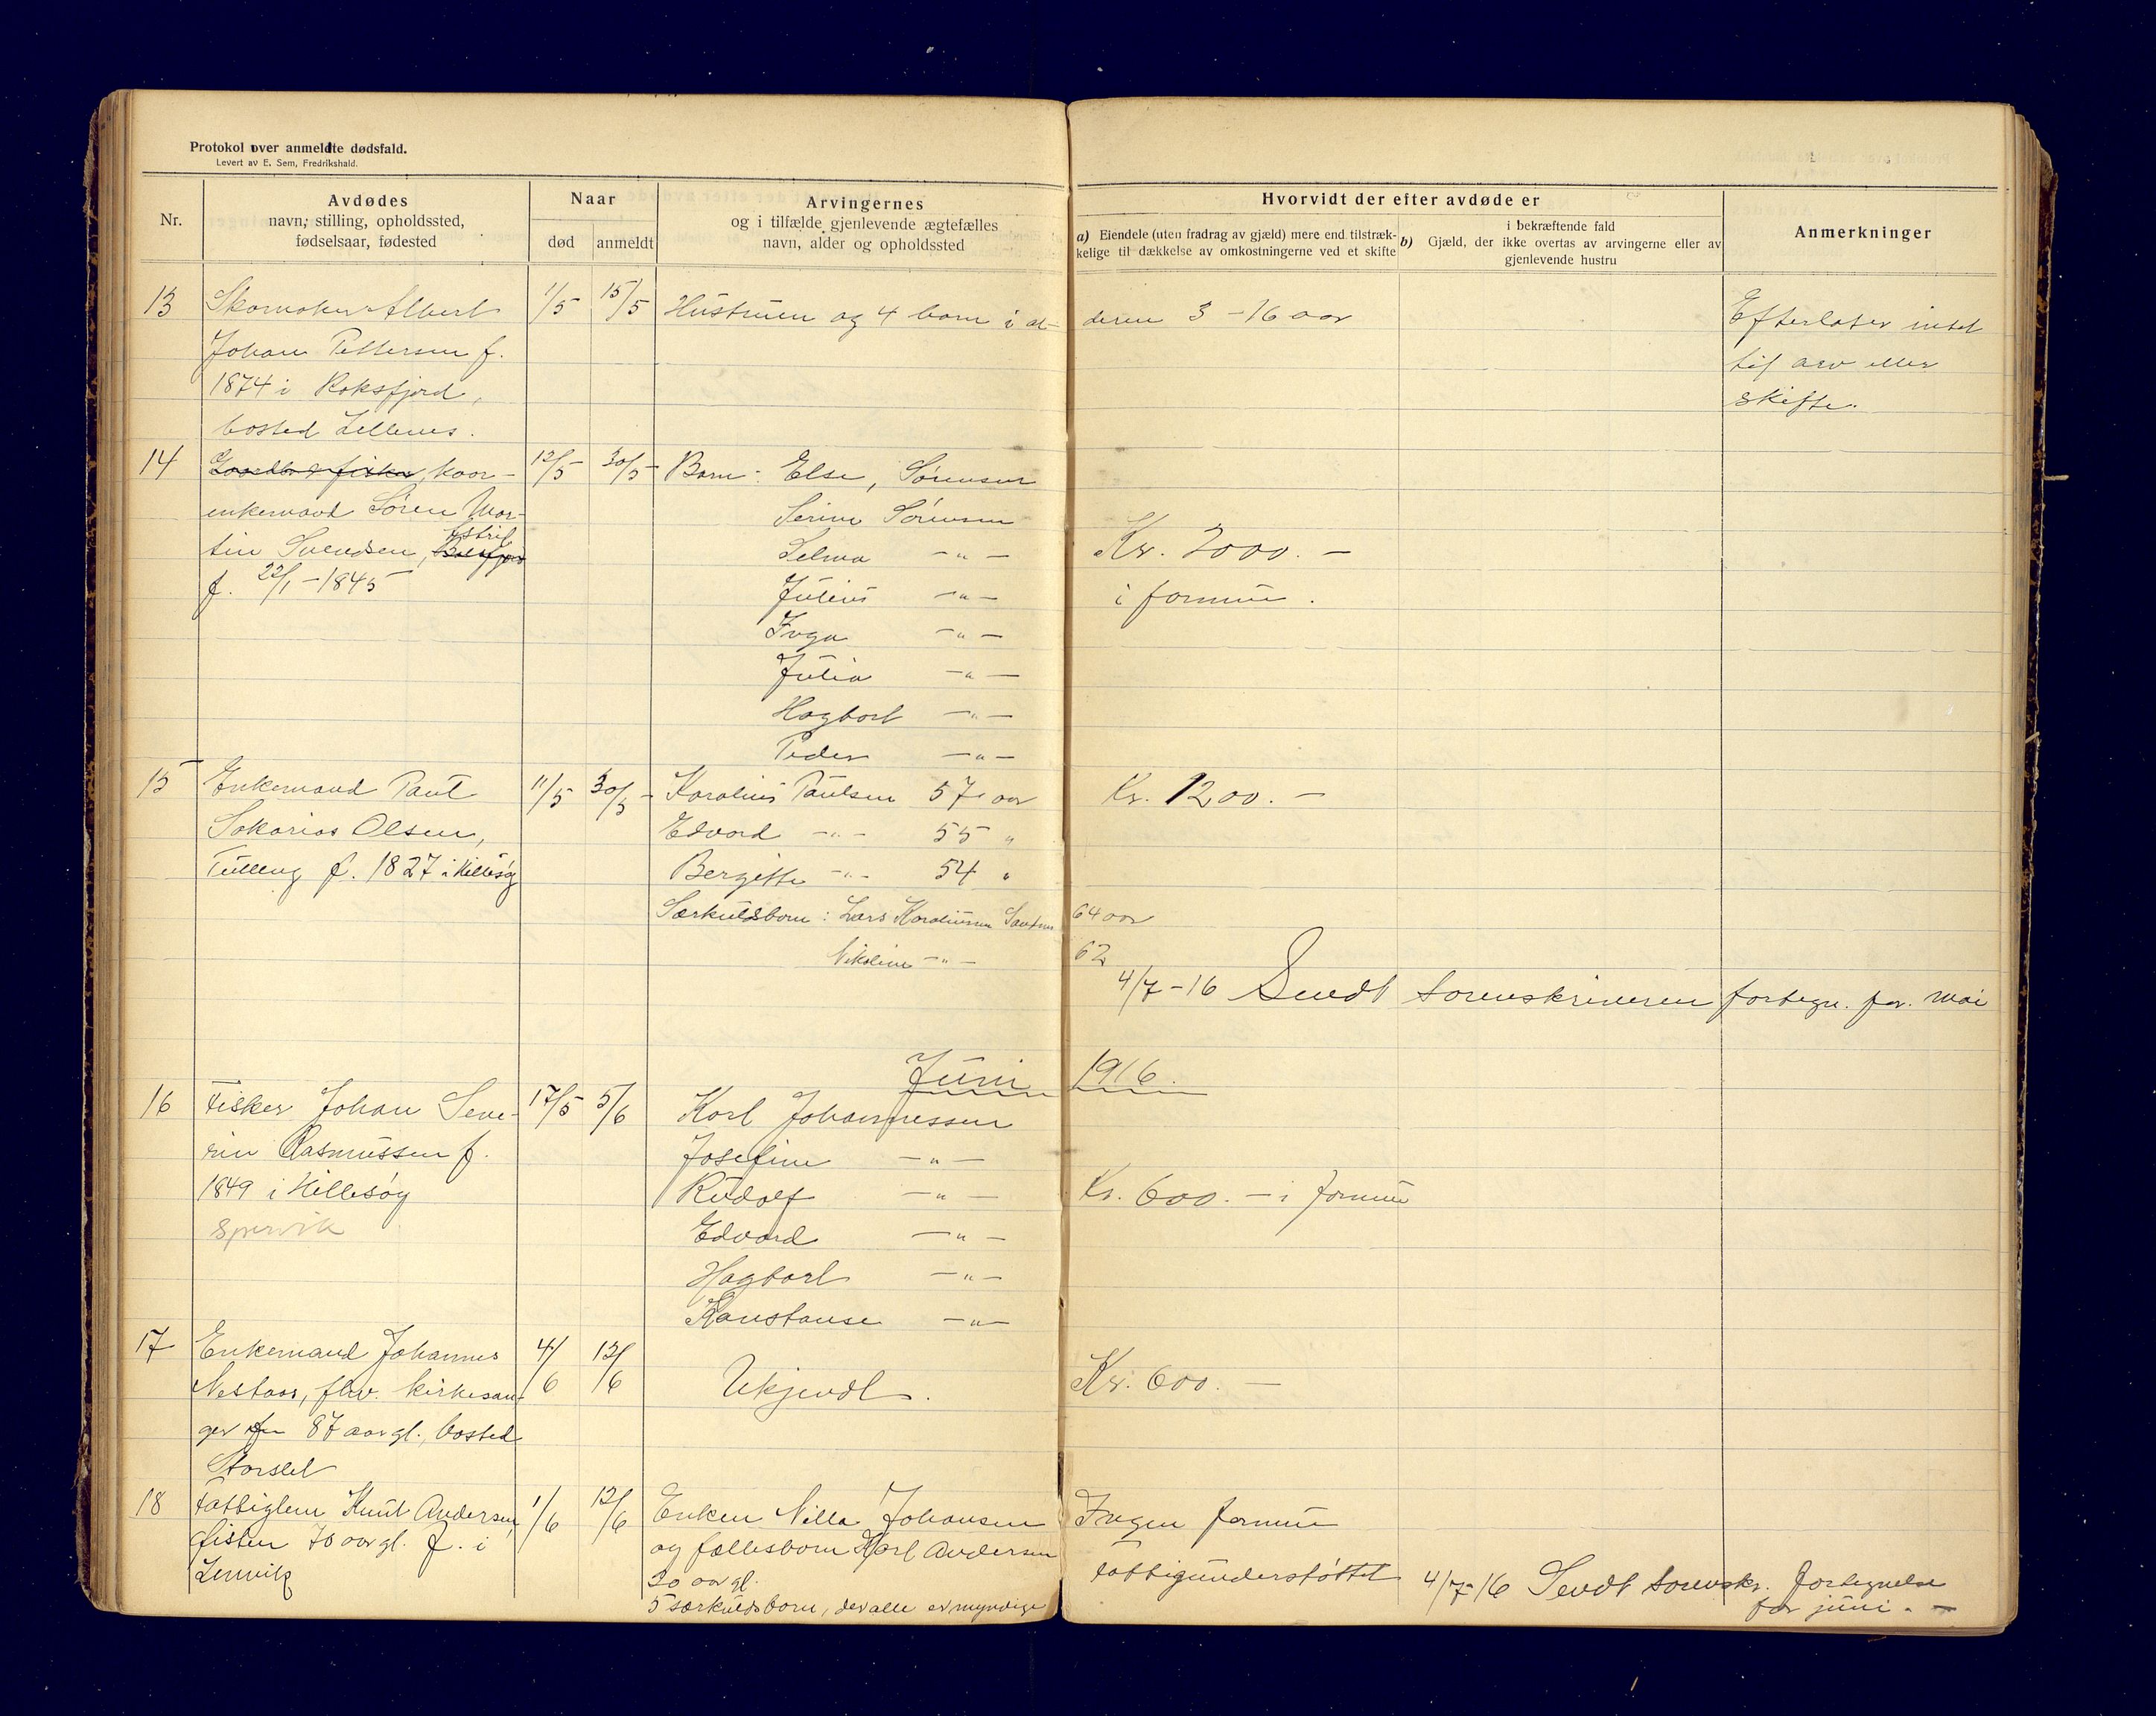 Protokol over anmeldte dødsfald.
Levert av E. Sem, Fredrikshald.
Nr.
Avdødes
navn, stilling, opholdssted,
fødselsaar, fødested
Naar
død
anmeldt
Arvingernes
og i tilfælde gjenlevende ægtefælles
navn, alder og opholdssted
Hvorvidt der efter avdøde er
a) Eiendele (uten fradrag av gjæld) mere end tilstræk-
kelige til dækkelse av omkostningerne ved et skifte
i bekræftende fald
b) Gjæld, der ikke overtas av arvingerne eller av
gjenlevende hustru
Anmerkninger
13 Skomaker Albert 1/5 15/5 Hustruen og 4 barn i al- deren 3 - 16 aar Efterlater intet
Johan Pettersen f. til arv eller
1874 i Roksfjord, skifte.
bosted Lillenes.
14 fisker, kaar- 12/5 30/5 Barn: Else, Sørensen
enkemand Søren Mar- Serine Sørensen
tin Svendsen, Selma -"- Kr. 2000.-
f. 22/1-1845 Julius -"- i formue.
Inga -"-
Julia -"-
Hagbart -"-
Peder -"-
15 Enkemand Paul 11/5 30/5 Karolius Paulsen 57 aar Kr. 1200.-
Sakarias Olsen, Edvard -"- 55 "
Tulleng f. 1827 i Hillesøy Bergitte -"- 54 "
Særkuldsbarn: Lars Karoliussen 64 aar
Nikoline -"- 62
4/7-16 Sendt sorenskriveren fortegn. for mai
Juni 1916.
16 Fisker Johan Seve- 17/5 5/6 Karl Johannessen
rin Rasmussen f. Josefine -"-
1849 i Hillesøy Rudolf -"- Kr. 600.- i formue
Spervik Edvard -"-
Hagbart -"-
Konstanse -"-
17 Enkemand Johannes 4/6 12/6 Ukjendt. Kr. 600.-
Nestaas, fhv. kirkesan-
ger 87 aar gl., bosted
Storslet
18 Fattiglem Knut Andersen, 1/6 12/6 Enken Nilla Johansen Ingen formue
Gisten 70 aar gl. f. i og fællesbarn Karl Andersen fattigunderstøttet
Lenvik 20 aar gl.
5 særkuldsbarn, der alle er myndige
4/7-16 Sendt sorenskr. fortegnelse
for juni.-